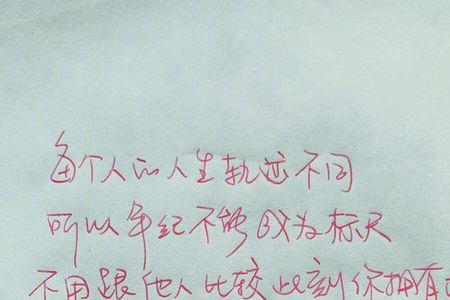 每个人的人生轨迹不同
所以年纪不能成为标尺
不用跟他人比较此刻你拥有